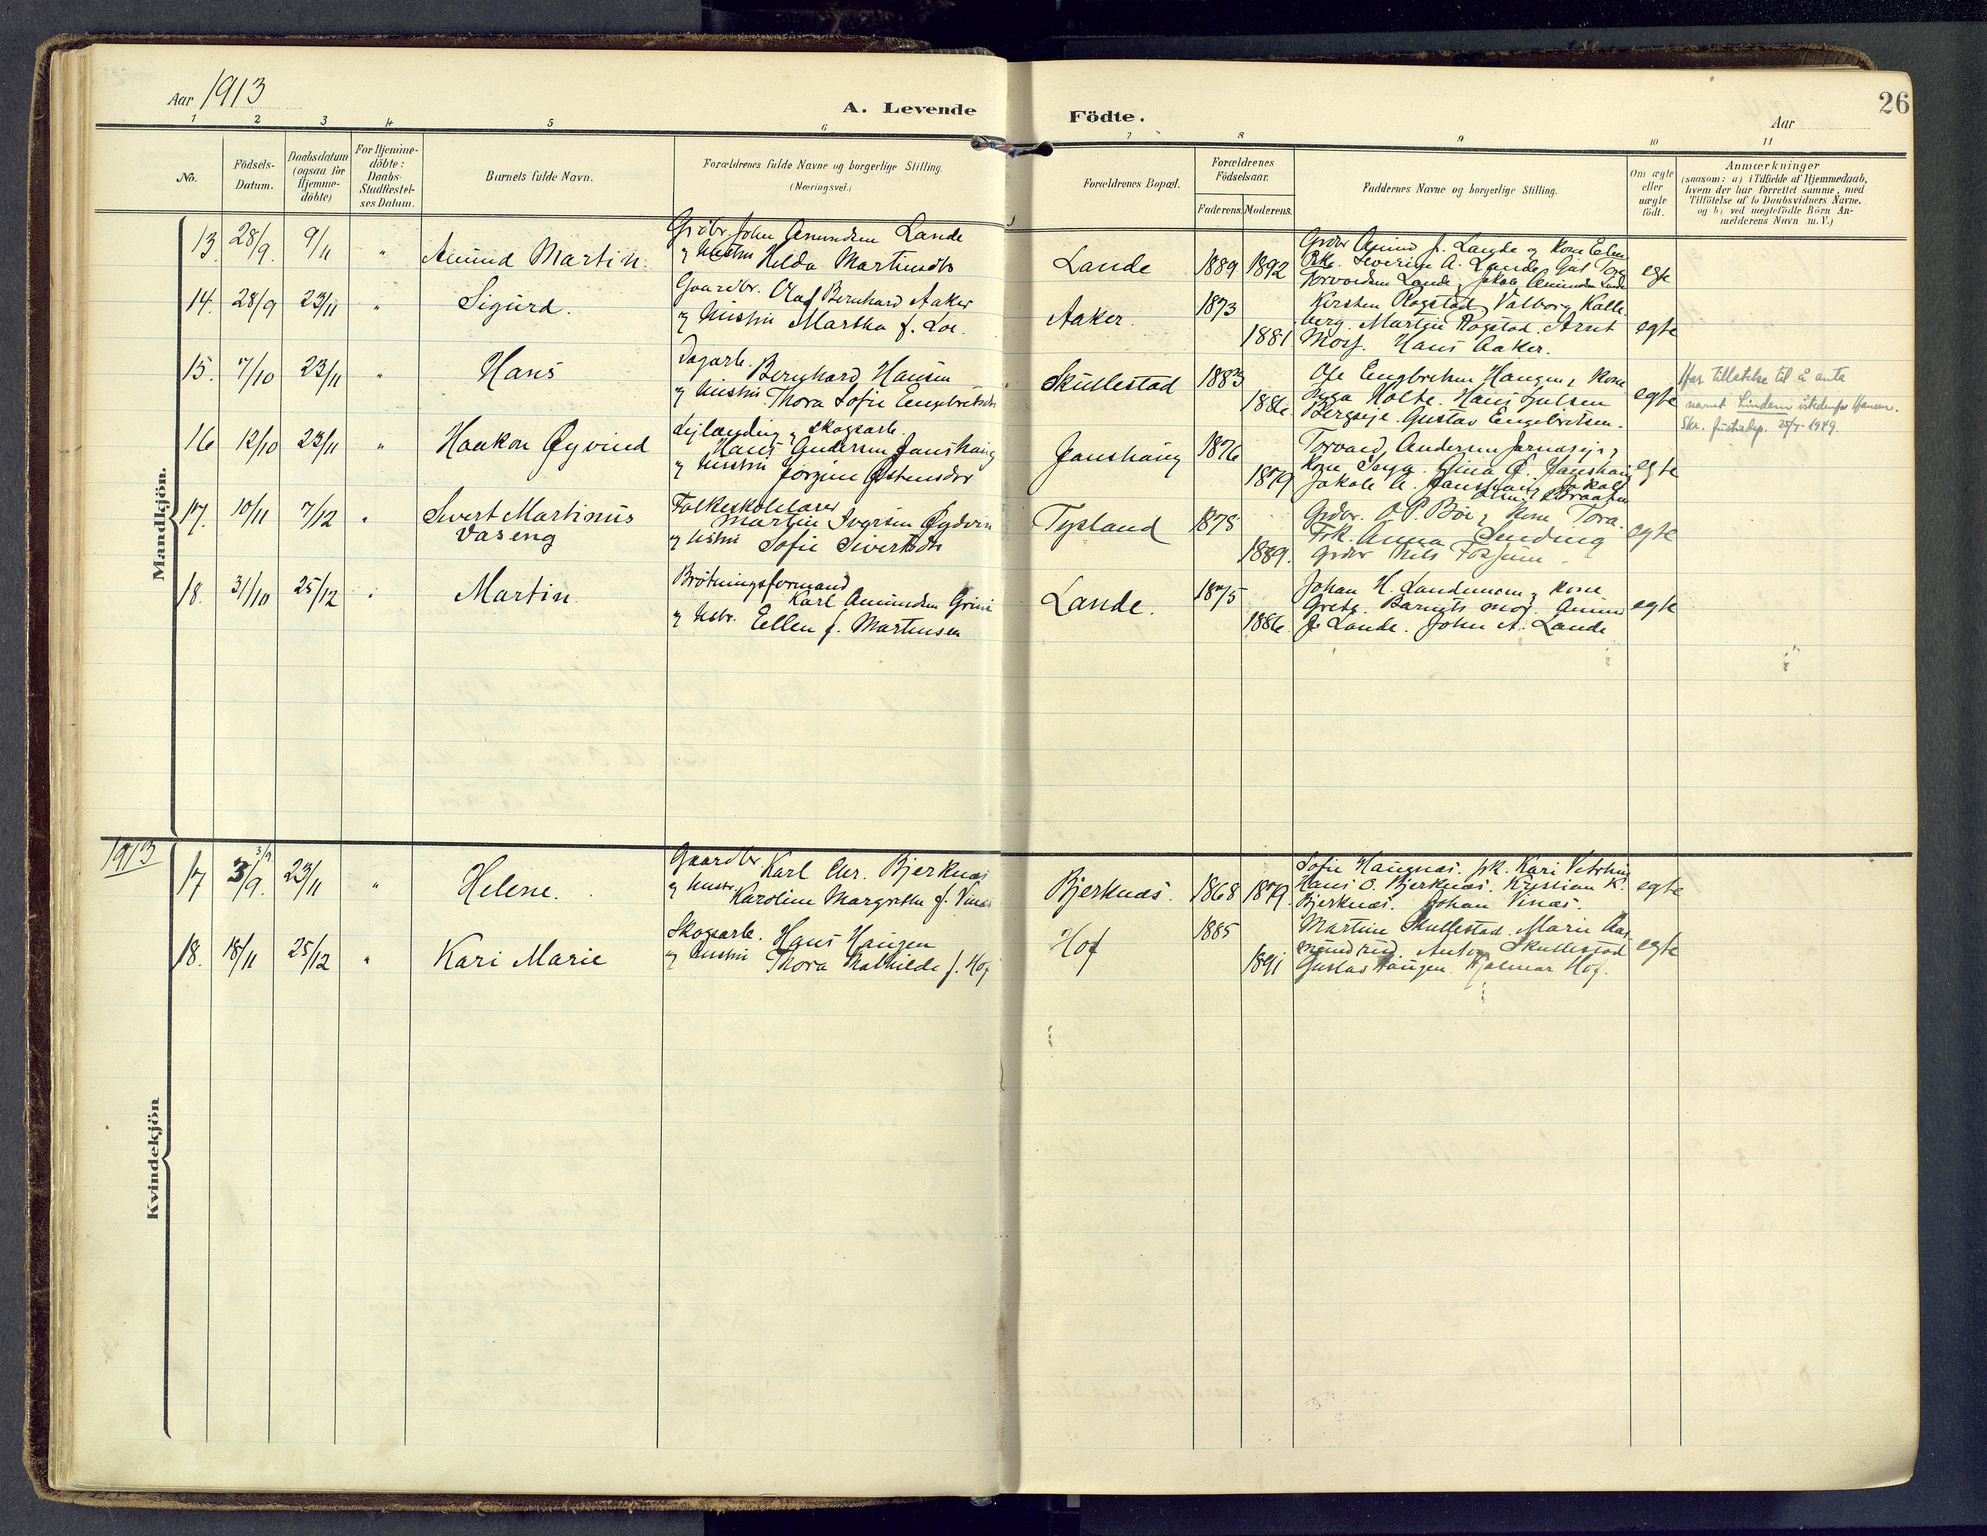 Aar 1913
A. Levende Födte.
26
Aar
1 2 3 4 5 6 7 8 9 10 11
No.
Födsels-Datum.
Daabsdatum (ogsaa for Hjemme-döbte)
For Hjemme-döbte: Daabs-Stadfæstel-ses Datum.
Barnets fulde Navn.
Forældrenes fulde Navne og borgerlige Stilling.
(Næringsvei.)
Forældrenes Bopæl.
Forældrenes Födselsaar.
Faderens. Moderens.
Faddernes Navne og borgerlige Stilling.
Om ægte eller uægte födt.
Anmærkninger
(saasom: a) i Tilfælde af Hjemmedaab,
hvem der har forrettet samme, med
Tilföielse af to Daabsvidners Navne.
og b) ved uægtefödte Börn An-
melderens Navn m. V.)
Mandkjön.
13. 28/9. 9/11 " Amund Martin.
Grdbr. John Amundsen Lande
og hustru Helda Martinsdtr
Lande 1889 1892
Grdbr Amund J. Lande og kone Ellen
Severine A. Lande, Gul Tor
Torvoldsen Lande, Jakob Amundsen Lande
egte
14. 28/9 23/11 " Sigurd.
Gaardbr. Olaf Bernhard Aaker
og hustru Martha f. Loe.
Aaker. 1873 1881
Kirsten Rogstad, Valborg Kalle-
berg. Martin Rogstad. Arnt
Moe. Hans Aaker.
egte
15. 7/10 23/11 " Hans
Dagarb. Bernhard Hansen
og hustru. Thora Sofie Engebretsdtr
Skullestad 1883 1886.
Ole Engbretsen Haugen, kone
Inga Holte. Hans Julsen
Bergseje. Gustav Engebretsen.
egte
Har tillatelse til å anta
navnet Lindem istedenfor Hansen.
Skr. Justisdep. 25/7-1949.
16 12/10 23/11 " Haakon Øyvind
Lejlending, skogsarb.
Hans Andersen Janshaug
og hustru Jørgine Østensdtr
Janshaug 1876 1879
Torvard Andersen Jernæseje,
kone Inga. Gina O. Janshaug
Jakob A. Janshaug, Jakob
Braaten
egte
17. 10/11 7/12 " Sivert Martinus
Vaseng
Folkeskolelærer
Martin Øydvin
og hustru Sofie Sivertsdtr
Tysland 1878 1889.
Grdbr. O. P. Bøe, kone Tora.
Frk. Anna Sinding
Grdbr Nils Fossum
egte
18. 31/10 25/12 " Martin
Brøtningsformand
Karl Amundsen Grime
og hsbr. Ellen f. Martinsen
Lande. 1875 1886
Johan H. Landemoen, kone
Grete. Barnets mor. Amund
J. Lande. John A. Lande
egte
1913
Kvindekjön
17 3/9. 3/9 23/11 " Helene.
Gaardbr Karl Chr. Bjerknæs
og hustr. Karoline Margrethe f. Vinæs
Bjerknæs. 1868 1879.
Sofie Haugnæs. frk. Kari
Hans O. Bjerknæs. Kristian K.
Bjerknæs. Johan Vinæs.
egte
18. 18/11 25/12 " Kari Marie
Skogsarb. Hans Haugen
og hustru Thora Mathilde f. Hof
Hof 1885 1891
Martine Skullestad. Marie Aas-
mundrud. Anton Skullestad
Gustav Haugen. Hjalmar Hof.
egte